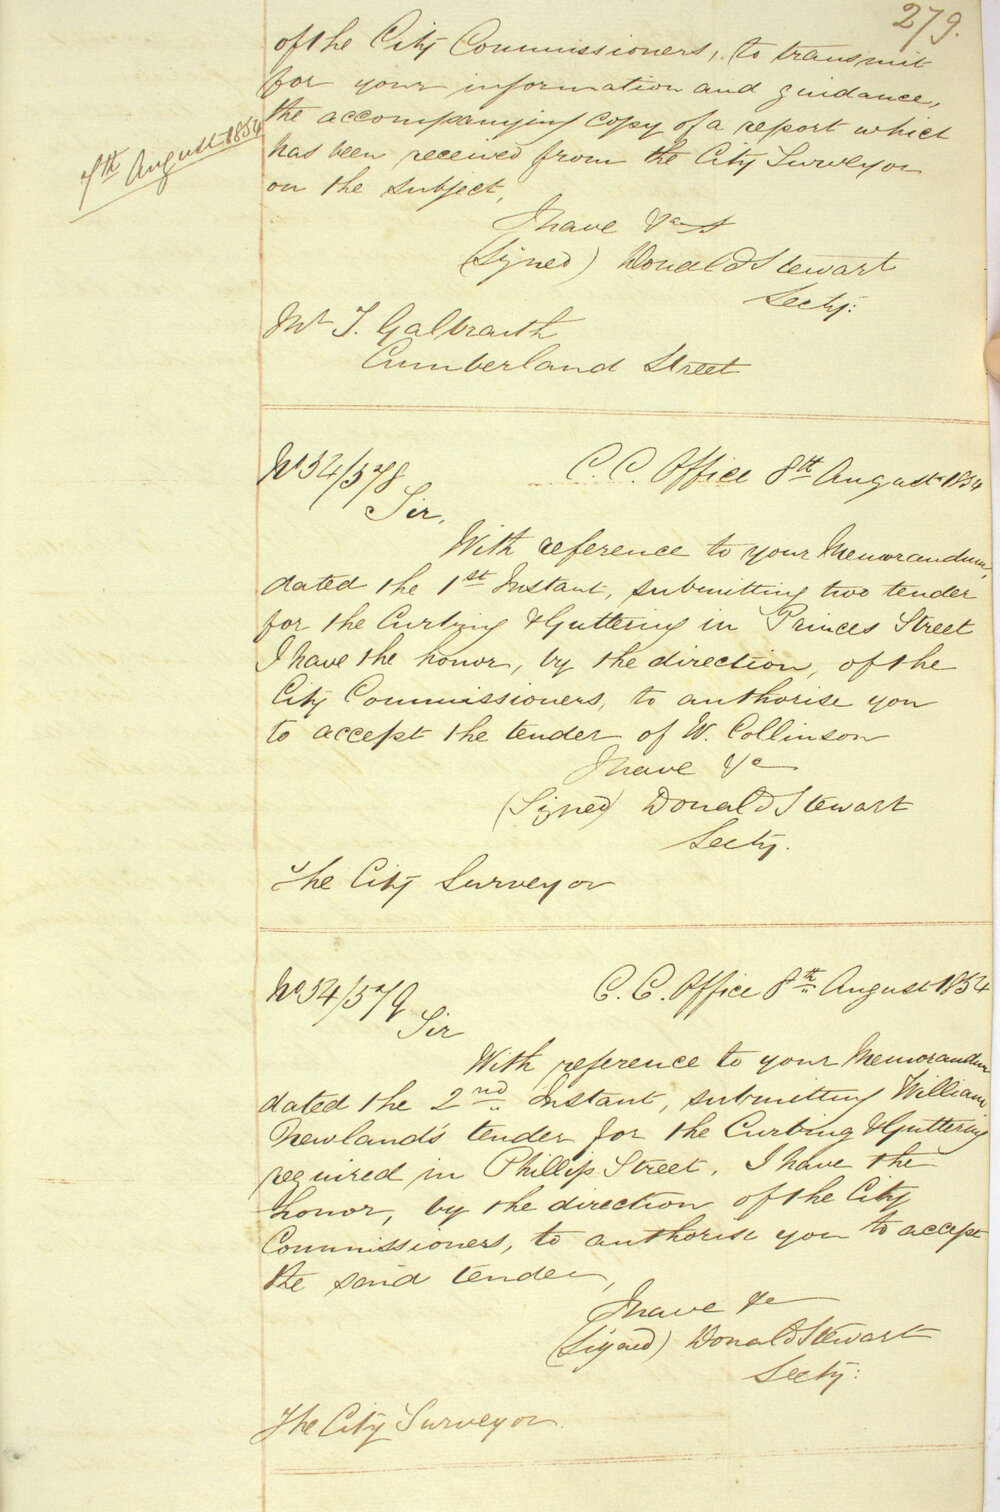 279.
of the City Commissioners, to transmit
for your information and guidance,
the accompanying copy of a report which
7th August 1854
has been received from the City Surveyor
on the subject,
I have &c
(Signed) Donald Stewart
Secty:
Mr T. Galbraith
Cumberland Street
No 54/578
C. C. Office 8th August 1854
Sir,
With reference to your Memorandum,
dated the 1st Instant, submitting two tender
for the Curbing & Guttering in Princes Street
I have the honor, by the direction, of the
City Commissioners, to authorise you
to accept the tender of W. Collinson
I have &c
(Signed) Donald Stewart
Secty.
The City Surveyor
No 54/579
C. C. Office 8th August 1854
Sir
With reference to your Memorandum
dated the 2nd Instant, submitting William
Newland's tender for the Curbing & Guttering
required in Phillip Street. I have the
honor, by the direction of the City
Commissioners, to authorise you to accept
the said tender,
I have &c
(Signed) Donald Stewart
Secty:
The City Surveyor.